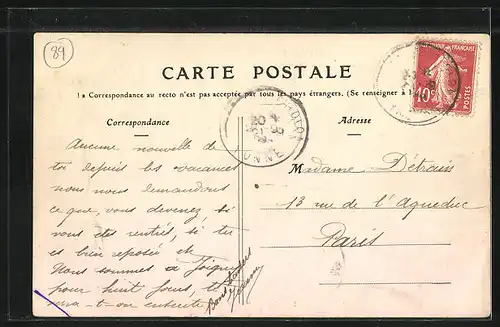 89
CARTE POSTALE
La Correspondance au recto n'est pas acceptée par tous les pays étrangers. (Se renseigner à
Correspondance
Adresse
RÉPUBLIQUE FRANÇAISE
10c
POSTES
YONNE
Aucune nouvelle de
toi depuis les vacances
nous nous demandons
ce que vous devenez, si
vous êtes rentrés, si tu
es bien reposée et
Nous sommes à Joigny
pour huit jours, te
verra-t-on ensuite
Bons baisers
Madame Détrain
13 rue de l'Aqueduc
Paris